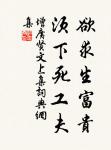 欲求生富貴
須下死工夫
增廣賢文上集詞典網
集